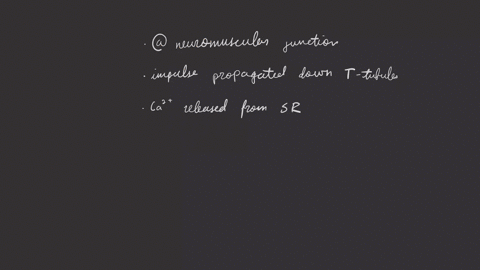 · @ neuromuscular junction
· impulse propagated down T-tubules
· Ca²⁺ released from SR